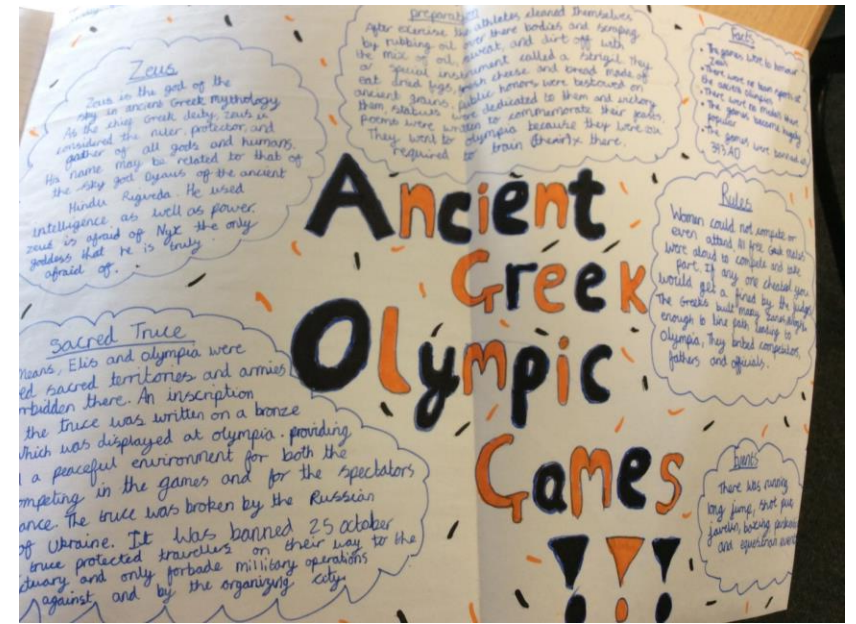 Zeus
Zeus is the god of the
sky in ancient Greek mythology
As the chief Greek deity, zeus is
considered the ruler, protector, and
father of all gods and humans.
His name may be related to that of
the sky god Dyaus of the ancient
Hindu Rigveda. He used
intelligence as well as power.
zeus is afraid of Nyx the only
goddess that he is truly
afraid of.
preparation
After exercise the athletes cleaned themselves
by rubbing oil over there bodies and scraping
the mix of oil, sweat, and dirt off with
a special instrument called a strigil. they
eat dried figs, fresh cheese and bread made of
ancient grains. public honors were bestowed on
them, statues were dedicated to them and victory
poems were written to commemorate their feats.
They went to olympia because they were
required to train there.
Facts
The games were to honour
Zeus
There were no team sports at
the ancient olympics
There were no medals
The games became highly
popular
The games were banned in
393 AD
Ancient
Greek
Olympic
Games
!!!
Rules
Women could not compete or
even attend. All free Greek males
were aloud to compete and take
part. If any one cheated you
would get a fined by the judges
The Greeks built many
enough to line path leading to
Olympia, They bribed competitors,
fathers and officials.
Sacred Truce
means, Elis and olympia were
sacred territories and armies
there. An inscription
the truce was written on a bronze
which was displayed at olympia. providing
a peaceful environment for both the
competing in the games and for the spectators
The truce was broken by the Russian
of Ukraine. It was banned 25 october
truce protected travellers on their way to the
and only forbade millitary operations
against and by the organizing city.
Events
There was running
long jump, shot put,
javelin, boxing
and equestrian events